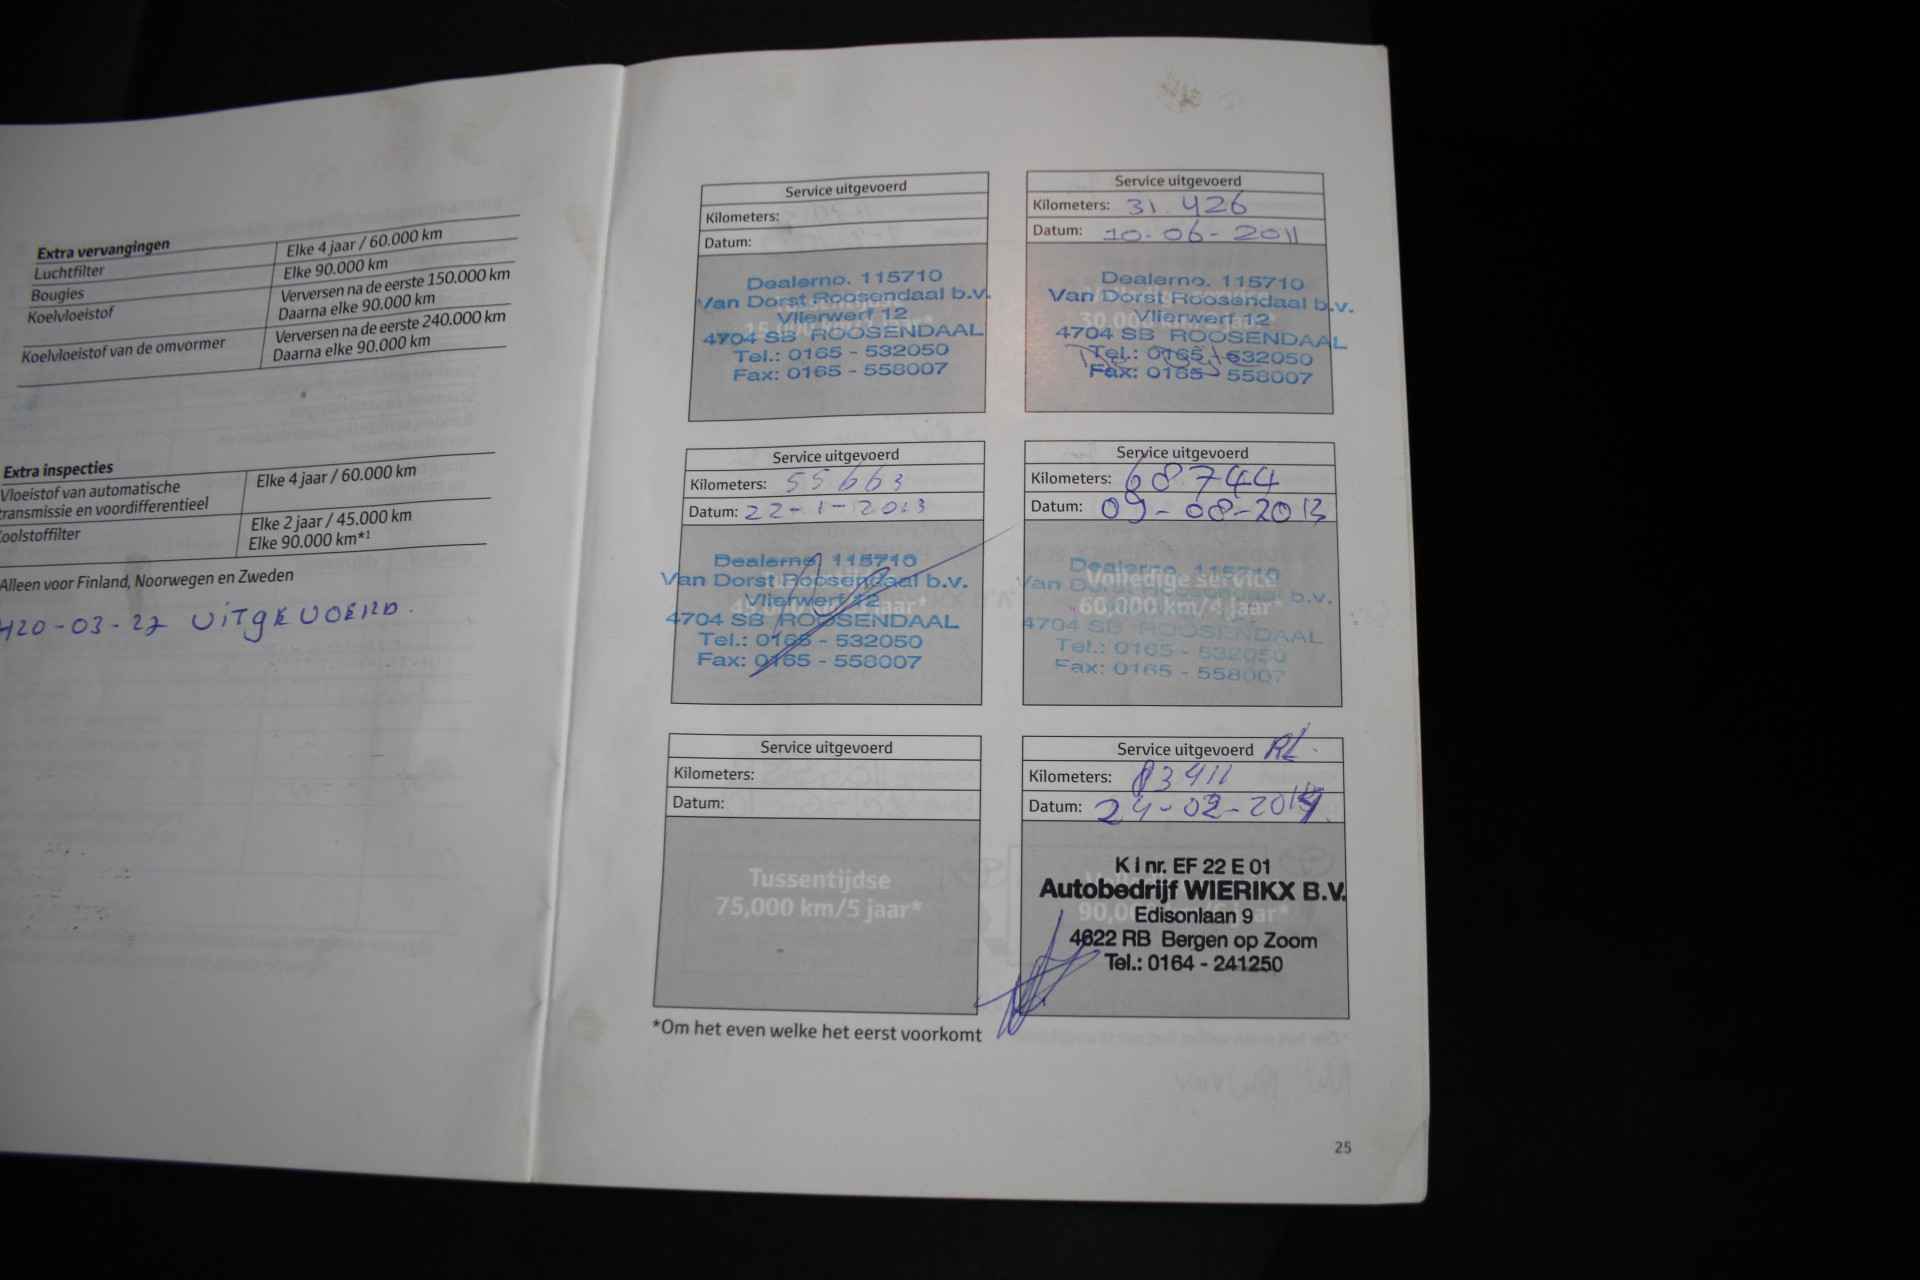 Extra vervangingen
Luchtfilter
Elke 4 jaar / 60.000 km
Bougies
Elke 90.000 km
Koelvloeistof
Verversen na de eerste 150.000 km
Daarna elke 90.000 km
Koelvloeistof van de omvormer
Verversen na de eerste 240.000 km
Daarna elke 90.000 km
Extra inspecties
Vloeistof van automatische
transmissie en voordifferentieel
Elke 4 jaar / 60.000 km
Koolstoffilter
Elke 2 jaar / 45.000 km
Elke 90.000 km*1
Alleen voor Finland, Noorwegen en Zweden
UITGEVOERD.
Service uitgevoerd
Kilometers:
Datum:
Dealerno. 115710
Van Dorst Roosendaal b.v.
Vlierwerf 12
15,000 jaar*
4704 SB ROOSENDAAL
Tel.: 0165 - 532050
Fax: 0165 - 558007
Service uitgevoerd
Kilometers: 31.426
Datum: 10-06-2011
Dealerno. 115710
Van Dorst Roosendaal b.v.
Vlierwerf 12
30,000 jaar*
4704 SB ROOSENDAAL
Tel.: 0165 - 532050
Fax: 0165 - 558007
Service uitgevoerd
Kilometers: 55663
Datum: 22-1-2013
Dealerno. 115710
Van Dorst Roosendaal b.v.
Vlierwerf 12
45,000 jaar*
4704 SB ROOSENDAAL
Tel.: 0165 - 532050
Fax: 0165 - 558007
Service uitgevoerd
Kilometers: 68744
Datum: 09-08-2013
Dealerno. 115710
Volledige service
Van Dorst Roosendaal b.v.
60,000 km/4 jaar*
4704 SB ROOSENDAAL
Tel.: 0165 - 532050
Fax: 0165 - 558007
Service uitgevoerd
Kilometers:
Datum:
Tussentijdse
75,000 km/5 jaar*
Service uitgevoerd RL.
Kilometers: 83411
Datum:
K i nr. EF 22 E 01
Autobedrijf WIERIKX B.V.
Edisonlaan 9
90,000 jaar*
4622 RB Bergen op Zoom
Tel.: 0164 - 241250
*Om het even welke het eerst voorkomt
25